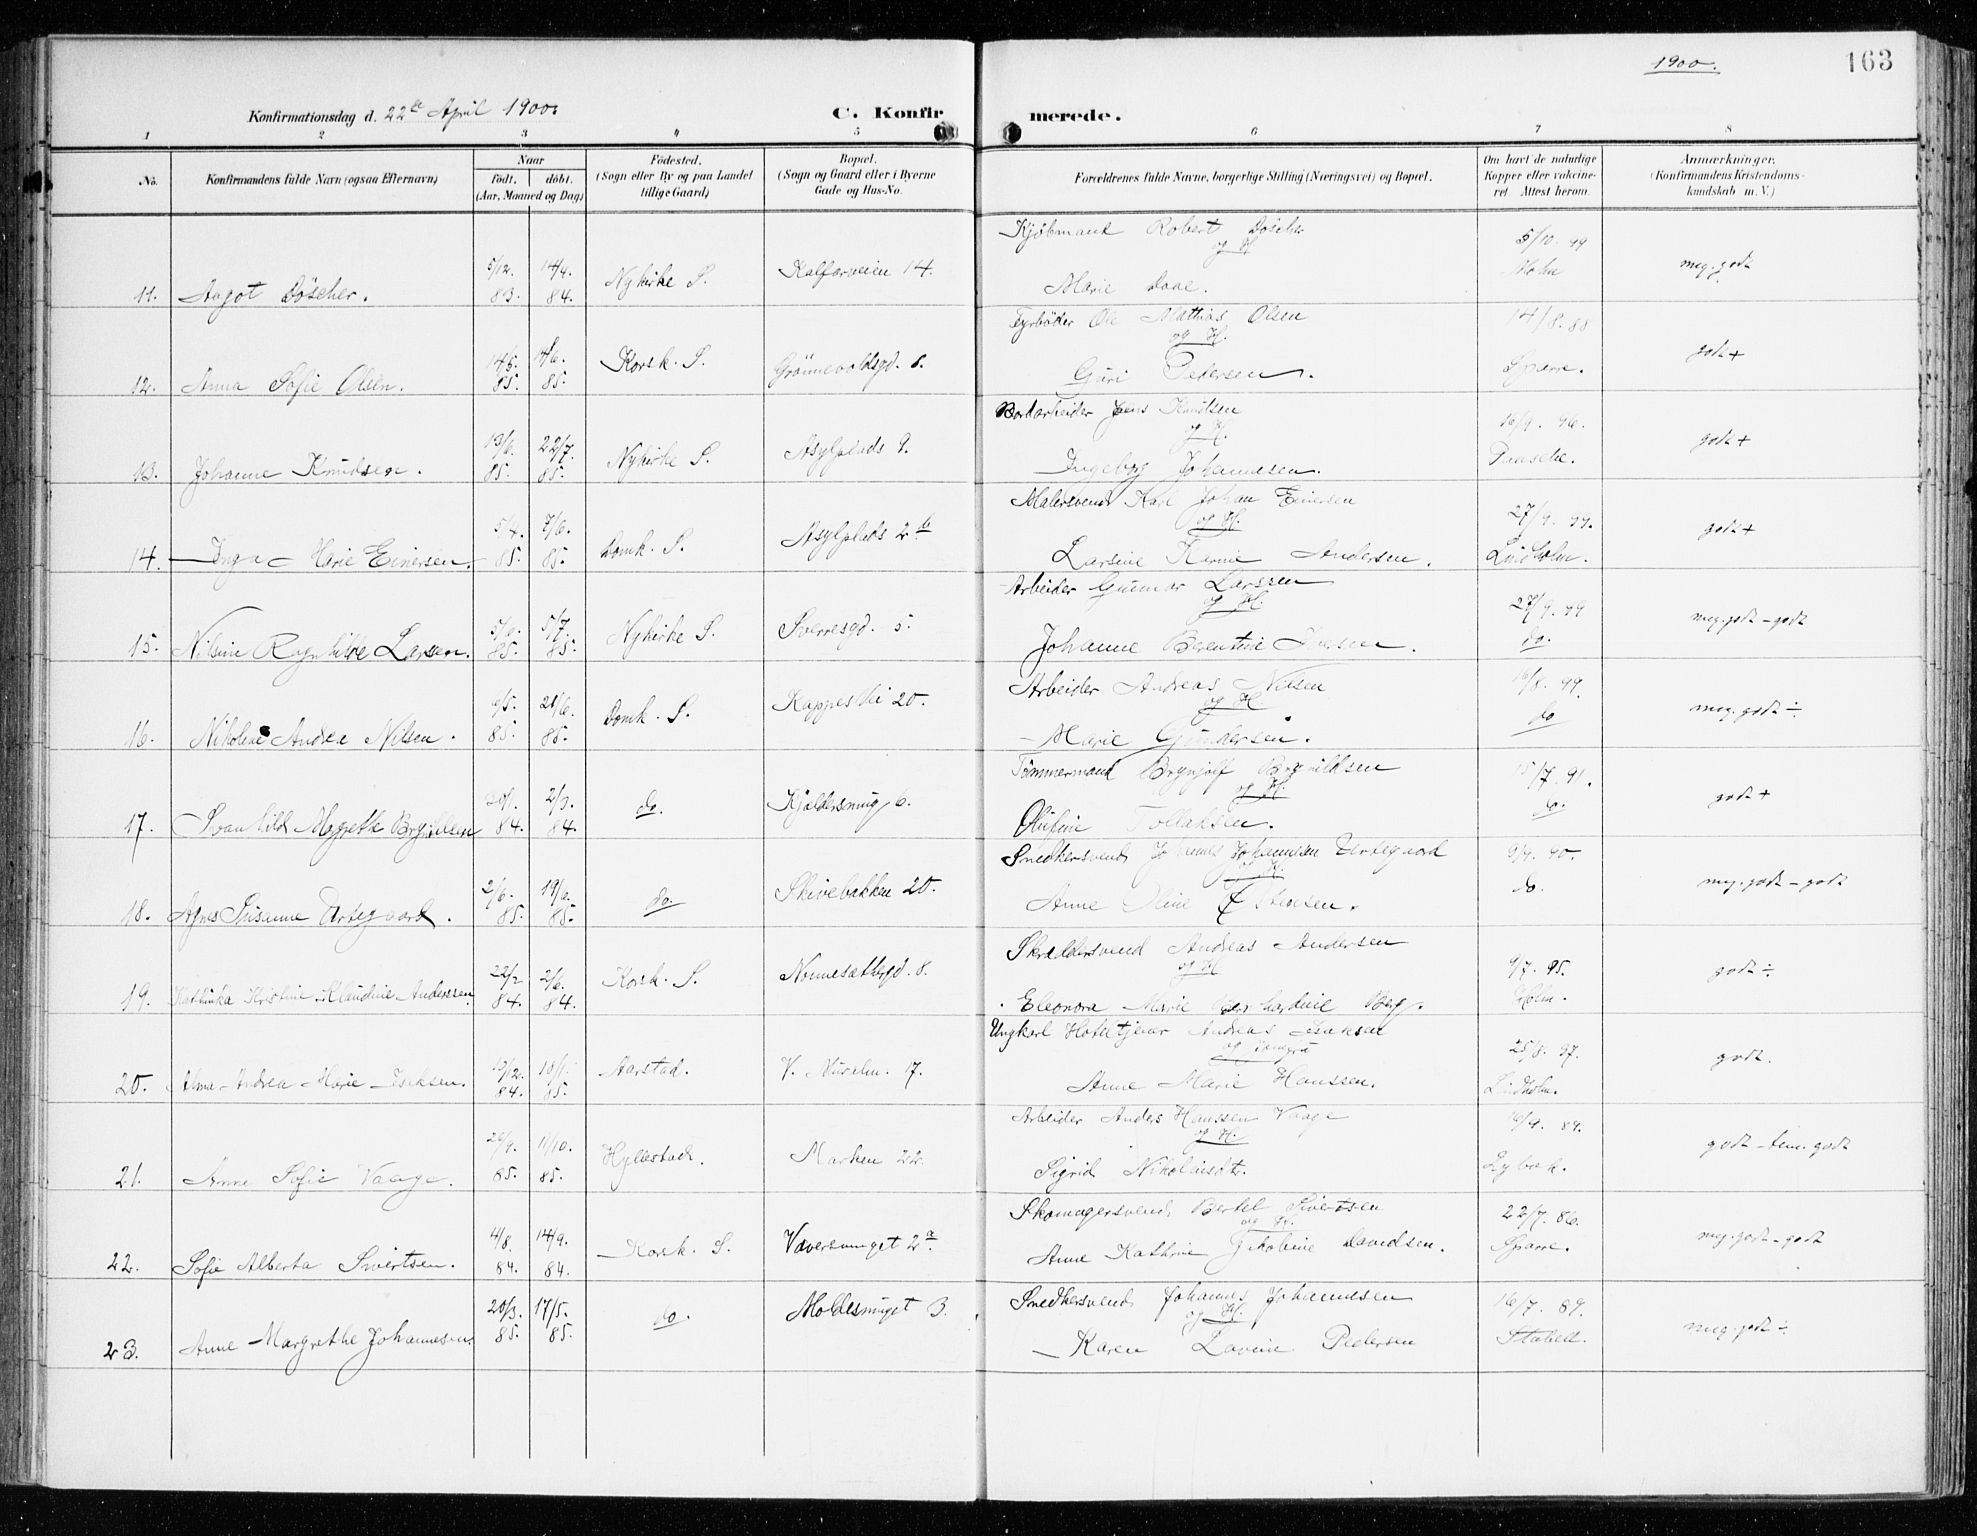 1900.
163
Konfirmationsdag d. 22de April 1900.
C. Konfirmerede.
1 2 3 4 5 6 7 8
No.
Konfirmandens fulde Navn (ogsaa Efternavn)
Naar
født. døbt.
(Aar, Maaned og Dag)
Fødested.
(Sogn eller By og paa Landet
tillige Gaard)
Bopæl.
(Sogn og Gaard eller i Byerne
Gade og Hus-No.
Forældrenes fulde Navne, borgerlige Stilling (Næringsvei) og Bopæl.
Om havt de naturlige
Kopper eller vaccine-
ret. Attest herom.
Anmærkninger.
(Konfirmandens Kristendoms-
kundskab m. V.)
Kjøbmand Robert Döscher
og H
11. Aagot Döscher. 5/12. 83. 14/4. 84. Nykirke S. Kalfarveien 14. Marie Daae. 5/10. 99 Mohn meg. godt
Fyrbøder Ole Mathias Olsen
og H.
12. Anna Sofie Olsen. 14/5. 85. 14/6. 85. Korsk. S. Grønnevoldsgd. 8. Guri Pedersen. 14/8. 88 Sparre. godt +
Bordarbeider Jens Knudsen
og H.
13. Johanne Knudsen. 13/6. 85. 22/7. 85. Nykirke S. Asylplads 9. Ingeborg Johannesen. 16/9. 96. Paasche. godt +
Malersvend Karl Johan Einersen
og H.
14. Inga Marie Einersen. 5/4. 85. 7/6. 85. Domk. S. Asylplads 2 b Larsine Andersen. 27/9. 99. Lindholm. godt +
Arbeider Gunnar Larssen
og H.
15. Nilsine Ragnhilde Larsen. 5/6. 85. 5/7. 85. Nykirke S. Sverresgd. 5. Johanne Berentine Iversen. 27/9. 99 do. meg. godt - godt
Arbeider Andreas Nilsen
og H.
16. Nikoline Andrea Nilsen. 9/5. 85. 21/6. 85. Domk. S. Kappes Vei 20. Marie Gundersen. 16/8. 99. do meg. godt ÷
Tømmermand Brynjolf Brynildsen
og H.
17. Svanhild Magrethe Brynildsen 30/1. 84. 2/3. 84. do. Kjeldersmug 6. Olufine Tollaksen. 15/7. 91. do. godt +
Snedkersvend Johannes Johannesen Artegaard
og H.
18. Agnes Susanne Artegaard. 2/6. 85. 19/6. 85. do. Skivebakken 20. Anne Oline 9/9. 90. do. meg. godt - godt
Skræddersvend Andreas Andersen
og H
19. Kathinka Kristine Klaudine Anderssen. 22/2 84. 2/6. 84. Korsk. S. Nonnesætergd. 8. Eleonora Marie Bernhardine Berg. 9/7. 95. Holm. godt ÷
Ungkarl Hoteltjener Andreas Isaksen
og
20. Alma Andrea Marie Isaksen. 19/12. 84. 18/1. 85. Aarstad. V. Muralm. 17. Anne Marie Hanssen. 25/8. 97. Lindholm. godt.
Arbeider Anders Hanssen Vaage
og H.
21. Anne Sofie Vaage. 85. 11/10. 85. Hyllestad. Marken 22. Sigrid Nikolaisdtr. 89. godt - tem. godt
Skomagersvend Bertel Sivertsen
og H.
22. Sofie Alberta Sivertsen. 4/8. 84. 14/9. 84. Korsk. S. Væversmuget 2a. Anne Kathrine Jakobine Davidsen. 22/7. 86. Sparre. meg. godt - godt
Snedkersvend Johannes Johannesen
og H.
23. Anne Margrethe Johannesen. 20/3. 85. 17/5. 85. do. Moldesmuget 3. Karen Lovine Pedersen 16/7. 89. Stabell. meg. godt ÷